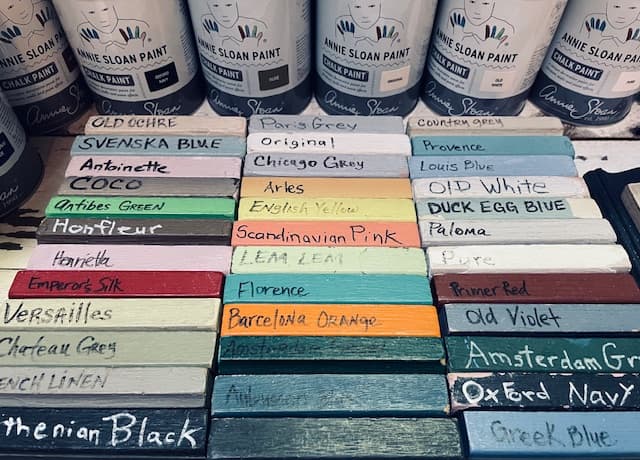 ANNIE SLOAN PAINT
CHALK PAINT
Annie Sloan
ANNIE SLOAN PAINT
CHALK PAINT
Annie Sloan
ANNIE SLOAN PAINT
CHALK PAINT
Annie Sloan
ANNIE SLOAN PAINT
CHALK PAINT
OLD WHITE
Annie Sloan
ANNIE SLOAN PAINT
CHALK PAINT
Annie Sloan
OLD OCHRE
SVENSKA BLUE
Antoinette
COCO
Antibes GREEN
Honfleur
Henrietta
Emperor's Silk
VERSAILLES
Chateau Grey
ENCH LINEN
thenian Black
Paris Grey
Original
Chicago Grey
Arles
English Yellow
Scandinavian Pink
LEM LEM
Florence
Barcelona ORANGE
Amsterdam
Aubusson
COUNTRY GREY
Provence
Louis Blue
OLD White
DUCK EGG BLUE
Paloma
Pure
Primer Red
Old Violet
Amsterdam Gr
OXFORD NAVY
Greek Blue